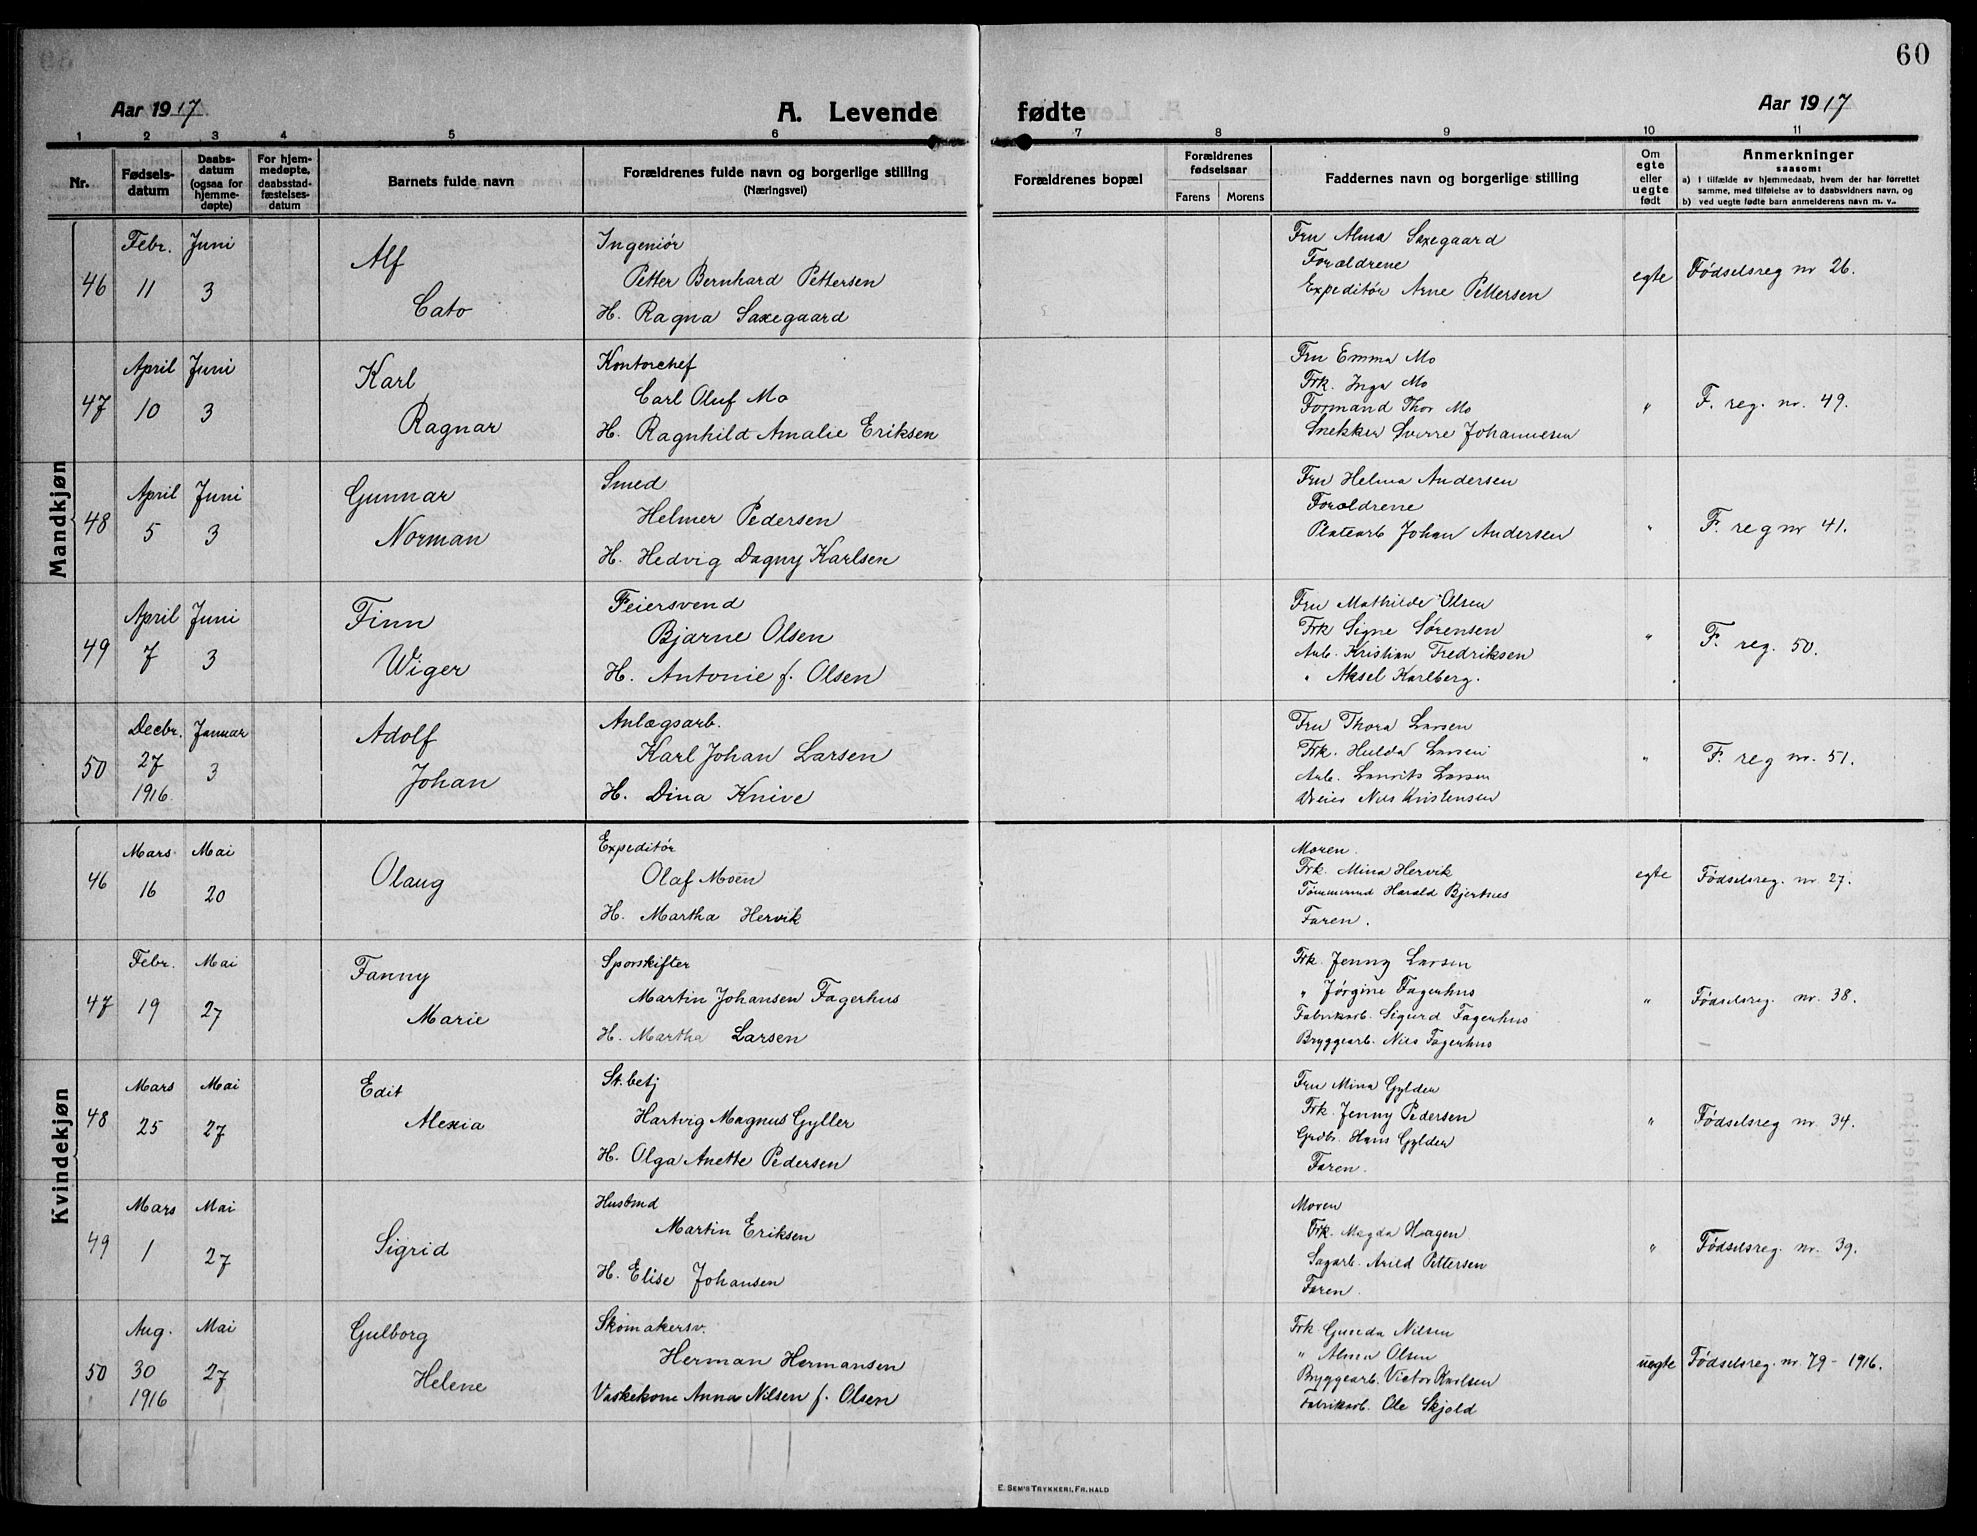 60
Aar 1917 A. Levende fødte Aar 1917
1 2 3 4 5 6 7 8 9 10 11
Nr.
Fødsels-
datum
Daabs-
datum
(ogsaa for
hjemme-
døpte)
For hjem-
medøpte,
daabsstad-
fæstelses-
datum
Barnets fulde navn
Forældrenes fulde navn og borgerlige stilling
(Næringsvei)
Forældrenes bopæl
Forældrenes
fødselsaar
Farens Morens
Faddernes navn og borgerlige stilling
Om
egte
eller
uegte
født
Anmerkninger
saasom:
a) I tilfælde av hjemmedaab, hvem der har forrettet
samme, med tilføielse av to daabsvidners navn, og
b) ved uegte fødte barn anmelderens navn m. v.
Mandkjøn
46
Febr.
11
Juni
3
Alf
Cato
Ingeniør
Petter Bernhard Pettersen
H. Ragna Saxegaard
Fru Alma Saxegaard
Forældrene
Expeditør Arne Pettersen
egte
Fødselsreg nr 26.
47
April
10
Juni
3
Karl
Ragnar
Kontorchef
Carl Oluf Mo
H. Ragnhild Amalie Eriksen
Fru Emma Mo
Frk. Inga Mo
Formand Thor Mo
Snekker Sverre Johannesen
"
F. reg. nr. 49.
48
April
5
Juni
3
Gunnar
Norman
Smed
Helmer Pedersen
H. Hedvig Dagny Karlsen
Fru Helma Andersen
Forældrene
Platearb Johan Andersen
"
F. reg nr 41.
49
April
7
Juni
3
Finn
Wiger
Feiersvend
Bjarne Olsen
H. Antonie f. Olsen
Fru Mathilde Olsen
Frk Signe Sørensen
Arb. Kristian Fredriksen
" Aksel Karlberg.
"
F. reg. 50.
50
Decbr.
27
1916
Januar
3
Adolf
Johan
Anlægsarb.
Karl Johan Larsen
H. Dina Knive
Fru Thora Larsen
Frk. Hulda Larsen
Arb. Laurits Larsen
Veier Nils Kristensen
"
F. reg nr. 51.
Kvindekjøn
46
Mars
16
Mai
20
Olaug
Expeditør
Olaf Moen
H. Martha Hervik
Moren.
Frk. Mina Hervik
Tømmermd Harald Bjertnes
Faren.
egte
Fødselsreg. nr. 27.
47
Febr.
19
Mai
27
Fanny
Marie
Sporskifter
Martin Johansen Fagerhus
H. Martha Larsen
Frk. Jenny Larsen
" Jørgine Fagerhus
Fabrikarb. Sigurd Fagerhus
Bryggearb. Nils Fagerhus
"
Fødselsreg. nr. 38.
48
Mars
25
Mai
27
Edit
Alexia
St. betj
Hartvig Magnus Gyller
H. Olga Anette Pedersen
Fru Mina Gylder
Frk. Jenny Pedersen
Grdbr. Hans Gylder
Faren.
"
Fødselsreg nr. 34.
49
Mars
1
Mai
27
Sigrid
Husmd
Martin Eriksen
H. Elise Johansen
Moren
Frk. Magda Hagen
Sagarb. Arild Pettersen
Faren.
"
Fødselsreg. nr. 39.
50
Aug.
30
1916
Mai
27
Gulborg
Helene
Skomakersv.
Herman Hermansen
Vaskekone Anna Nilsen f. Olsen
Frk. Gunda Nilsen
" Alma Olsen
Bryggearb. Victor Karlsen
Fabrikarb. Ole Skjold
uegte
Fødselsreg. nr. 79 - 1916.
E. SEM'S TRYKKERI, FR.HALD